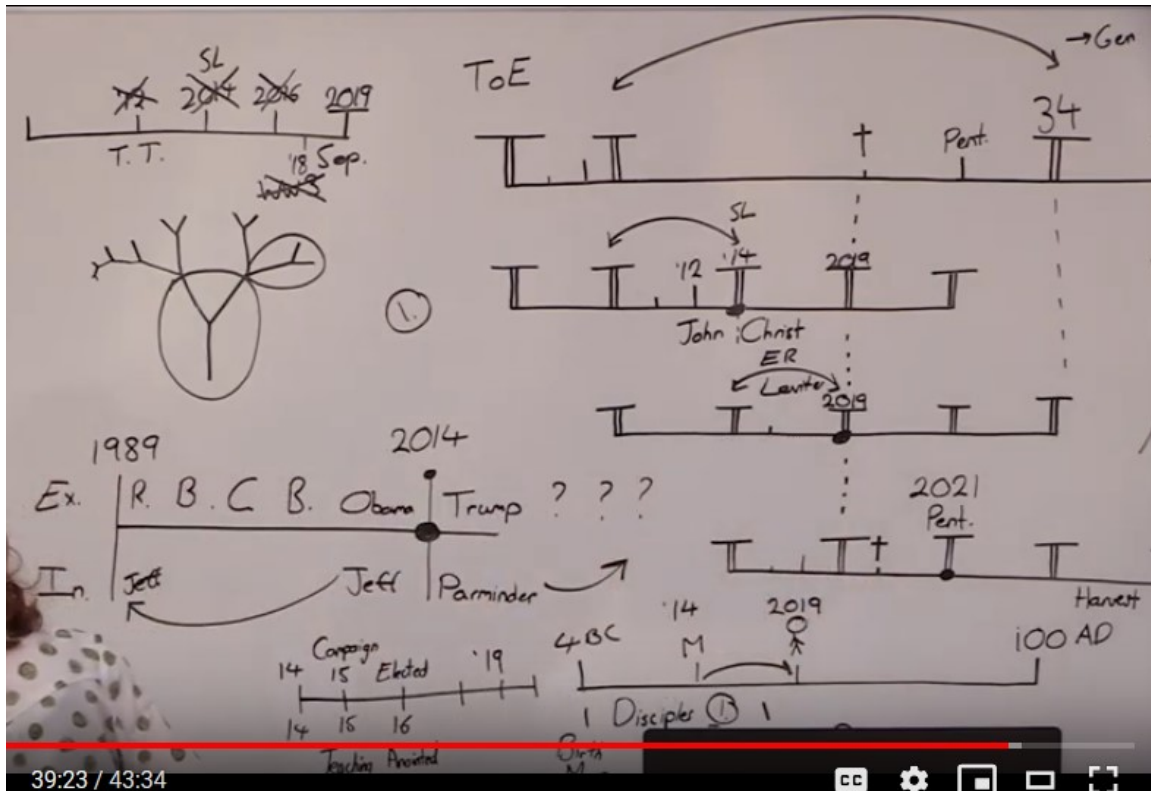 SL
72 2014 2026 2019
T. T. '18 Sep.
ToE
→ Gen
34
† Pent.
SL
'12 '14 2019
John Christ
1.
ER
Levite
2019
1989 2014
Ex. R. B. C B. Obama Trump ? ? ?
In. Jeff Jeff Parminder
2021
Pent.
†
Harvest
14 Campaign
15 Elected '19
14 15 16
Teaching Anointed
4BC '14 2019 100 AD
M
1 Disciples 13 1
Birth
39:23 / 43:34
CC